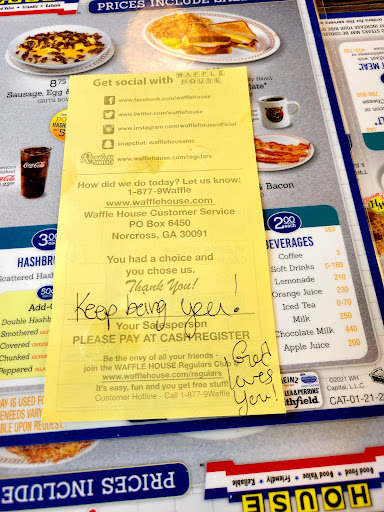 PRICES INCLUDE
Good Value • Friendly • Reliable
8.75
Sausage, Egg &
GRITS BO
Get social with WAFFLE HOUSE
www.facebook.com/wafflehouse
www.twitter.com/wafflehouse
www.instagram.com/wafflehouseofficial
snapchat: wafflehouseinc
Regulars
www.wafflehouse.com/regulars
How did we do today? Let us know:
1-877-9Waffle
www.wafflehouse.com
Waffle House Customer Service
PO Box 6450
Norcross, GA 30091
You had a choice and
you chose us.
Thank You!
Keep being you!
Your Salesperson
PLEASE PAY AT CASH REGISTER
Be the envy of all your friends -
join the WAFFLE HOUSE Regulars Club
www.wafflehouse.com/regulars
It's easy, fun and you get free stuff!
Customer Hotline - Call 1-877-9Waffle
God
loves
You!
Coca-Cola
Bacon
3.00
HASHBR
Scattered Hash
Add-O
Double Hashb
Smothered
Covered
Chunked
Peppered
2.00
each
BEVERAGES
CAL
Coffee 5
Soft Drinks 0-180
Lemonade 210
Orange Juice 230
Iced Tea 0-70
Milk
Chocolate Milk 440
Apple Juice 200
HEINZ
LEA & PERRINS
Smithfield
©2021 WH
Capital, L.L.C.
CAT-01-21-2
AY IS USED F
NEEDS VARY
BLE UPON REQUEST.
PRICES INCLUDE
Good Food • Good Value • Friendly • Reliable
HOUSE